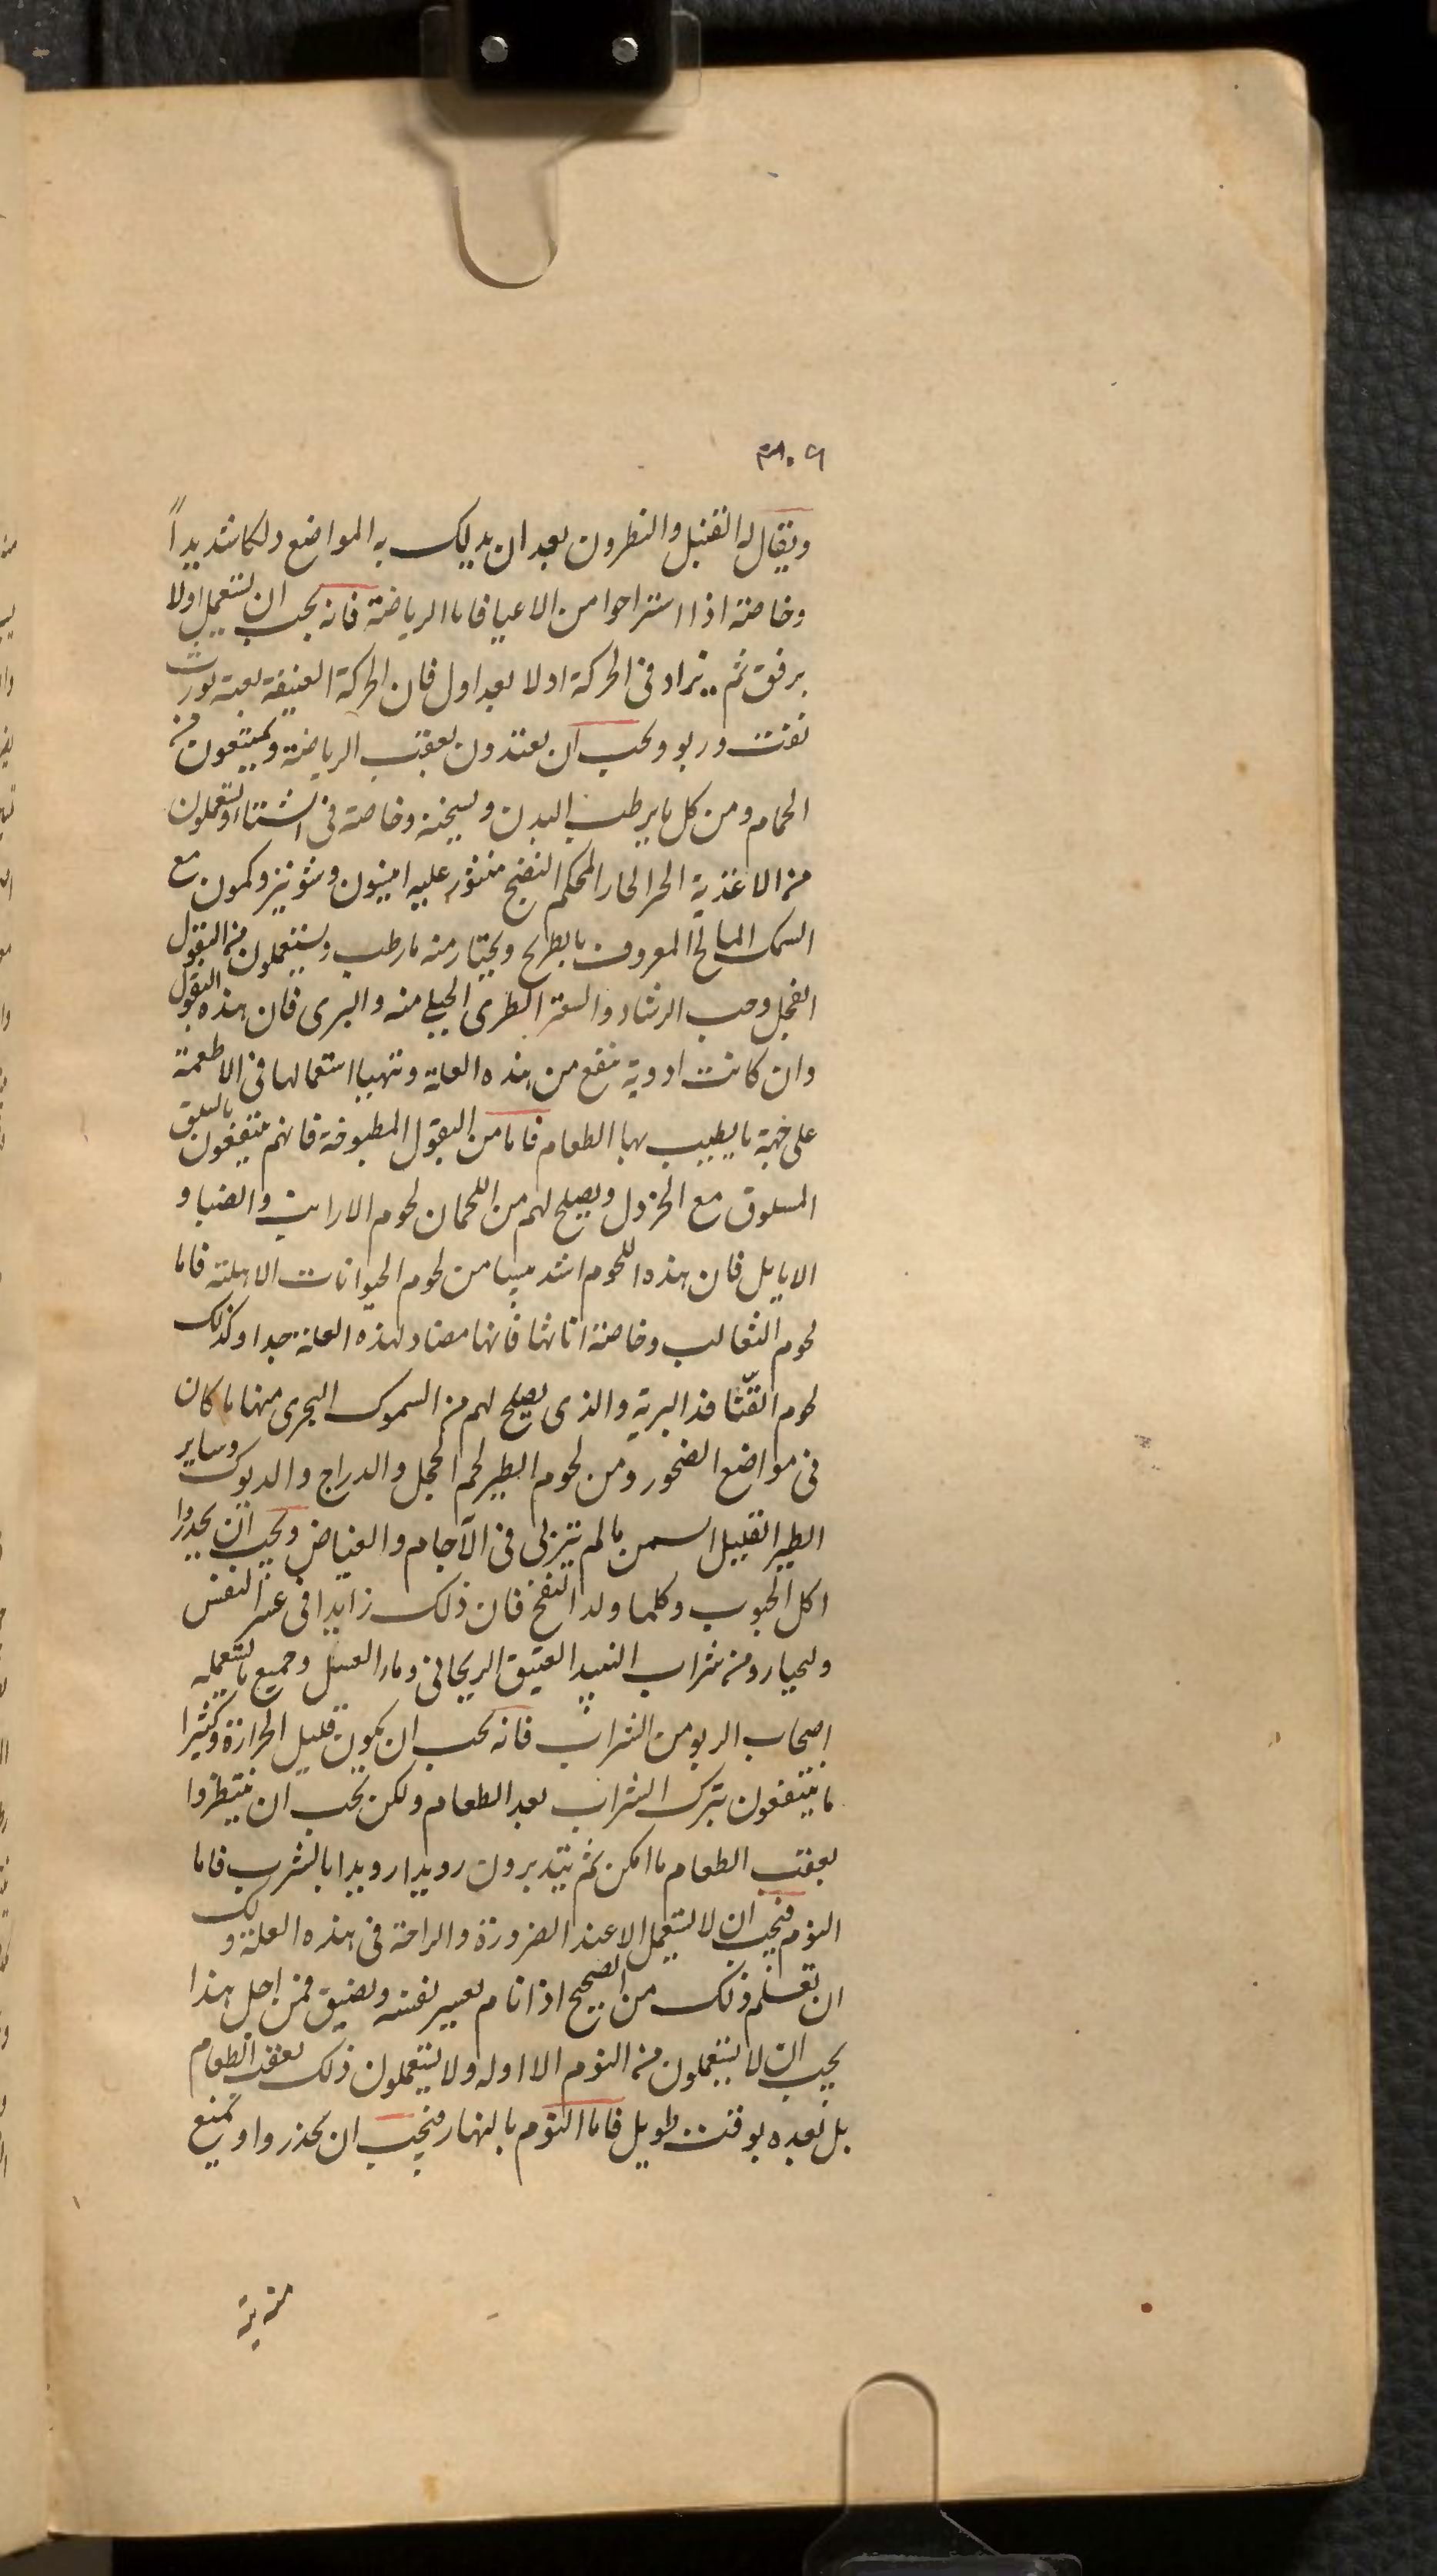 ٣٠٩
ويقال له القنبل والنطرون بعد ان يدلك به المواضع دلكا شديداً
وخاصة اذا استراحوا من الاعيا فاما الرياضة فانه يجب ان يستعمل اولا
برفق ثم يزاد فى الحركة اولا بعد اول فان الحركة العنيفة بغتة تورث
نفث وربو ويجب ان يغتذون بعقب الرياضة ويمتنعون من
الحمام ومن كل ما يرطب البدن ويسخنه وخاصة فى الشتاء ويستعملون
من الاغذية الحر الحار المحكم النضج منثور عليه انيسون وشونيز وكمون مع
السمك المالح المعروف بالطريح ويختار منه ما رطب ويستعملون من البقول
الفجل وحب الرشاد والسعتر الطرى الجبلى منه والبرى فان هذه البقول
وان كانت ادوية تنفع من هذه العلة ويتهيا استعمالها فى الاطعمة
على جهة ما يطيب بها الطعام فاما من البقول المطبوخة فانهم ينتفعون بالسلق
المسلوق مع الخردل ويصلح لهم من اللحمان لحوم الارانب والضبا و
الايايل فان هذه اللحوم اشد يبسا من لحوم الحيوانات الاهلية فاما
لحوم الثعالب وخاصة اناثها فانها مضاد لهذه العلة جدا وكذلك
لحوم القنافذ البرية والذى يصلح لهم من السموك البحرى منها ما كان
فى مواضع الصخور ومن لحوم الطير لحم الحجل والدراج والديوك وساير
الطير القليل السمن ما لم يتربى فى الآجام والغياض ويجب ان يحذروا
اكل الحبوب وكلما ولد النفخ فان ذلك زايدا فى عسر النفس
وليختاروا من شراب النبيذ العتيق الريحانى وماء العسل وجميع ما يستعمله
اصحاب الربو من الشراب فانه يجب ان يكون قليل الحرارة وكثيرا
ما ينتفعون بترك الشراب بعد الطعام ولكن يجب ان ينتظروا
بعقب الطعام ما امكن ثم يتدبرون رويدا رويدا بالشرب فاما
النوم فيجب ان لا يستعمل الا عند الضرورة والراحة فى هذه العلة ولك
ان تعلم ذلك من الصحيح اذا نام تغير نفسه وضيق فمن اجل هذا
يجب ان لا يستعملون من النوم الا اوله ولا يستعملون ذلك بعقب الطعام
بل بعده بوقت طويل فاما النوم بالنهار فيجب ان يحذروا ويمنع